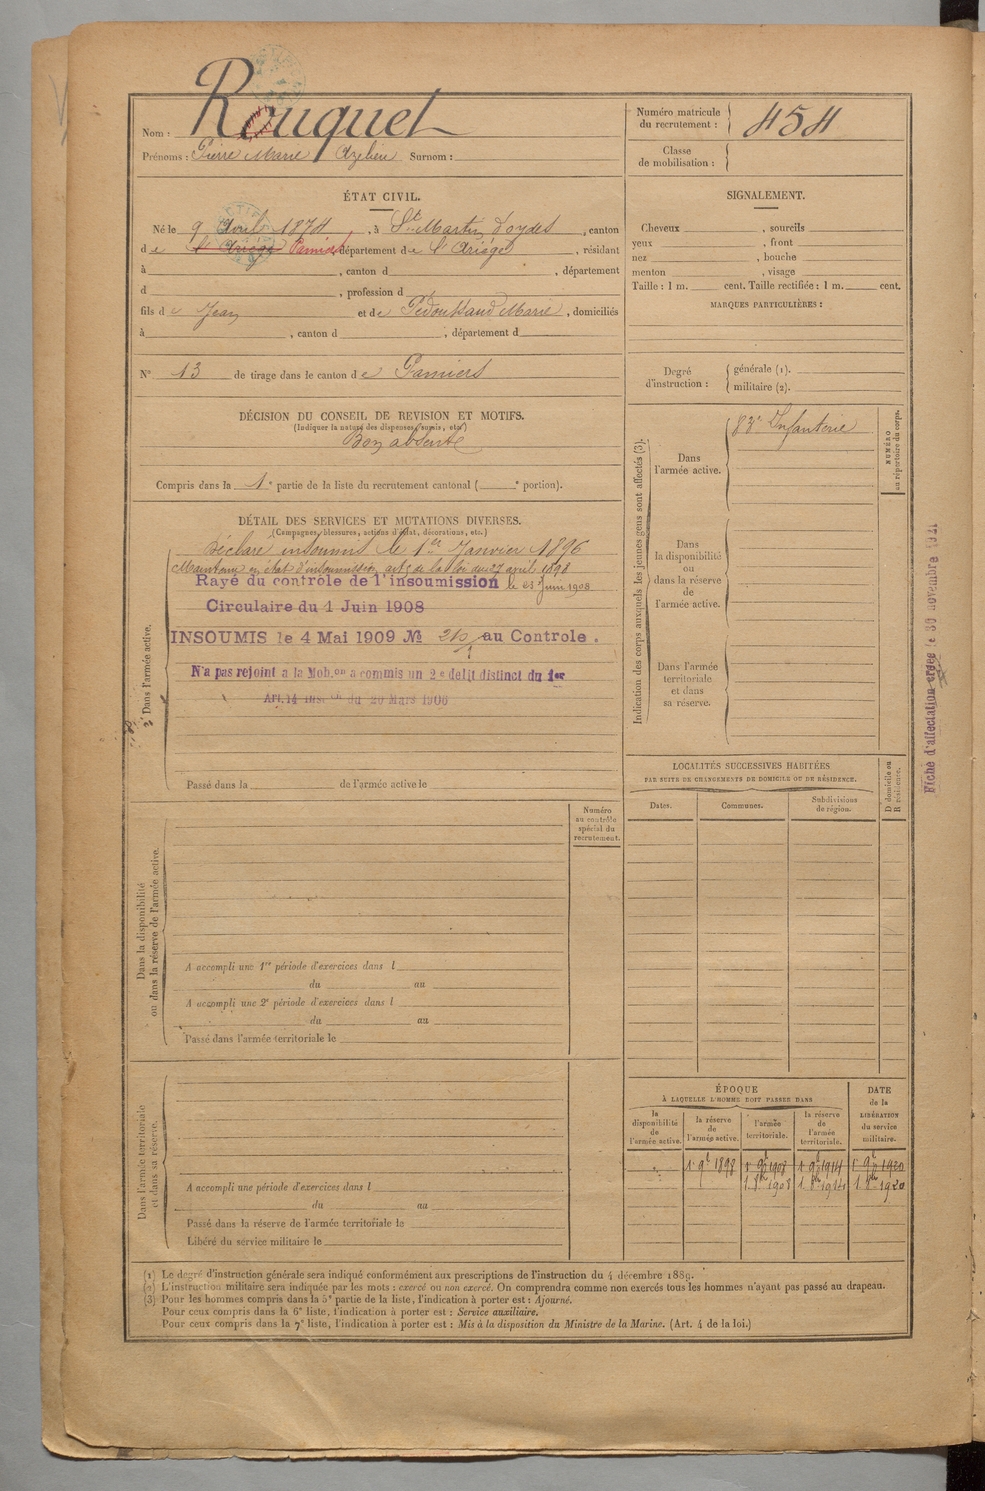 Nom : Rouquet
Prénoms : Pierre Marie Azelieu Surnom :
Numéro matricule du recrutement : 454
Classe de mobilisation :
ÉTAT CIVIL.
Né le 9 Avril 1874, à St Martin d'oydes, canton
de l'Ariège Pamiers, département de l'Ariège, résidant
à , canton d , département
d , profession d
fils de Jean et de Pédoussaud Marie, domiciliés
à , canton d , département d
N° 13 de tirage dans le canton de Pamiers
DÉCISION DU CONSEIL DE REVISION ET MOTIFS.
(Indiquer la nature des dispenses, sursis, etc.)
Bon absent
Compris dans la 1e partie de la liste du recrutement cantonal ( e portion).
DÉTAIL DES SERVICES ET MUTATIONS DIVERSES.
(Campagnes, blessures, actions d'éclat, décorations, etc.)
Déclaré insoumis le 1er Janvier 1896
Maintenu en état d'insoumission, art. de la loi du 27 avril 1898
Rayé du contrôle de l'insoumission le 23 Juin 1908
Circulaire du 1 Juin 1908
INSOUMIS le 4 Mai 1909 № 210 au Controle.
N'a pas rejoint a la Mob.on a commis un 2e delit distinct du 1er
Art. 14 ins. on du 20 Mars 1906
Dans l'armée active.
Passé dans la de l'armée active le
SIGNALEMENT.
Cheveux , sourcils
yeux , front
nez , bouche
menton , visage
Taille : 1 m. cent. Taille rectifiée : 1 m. cent.
MARQUES PARTICULIÈRES :
Degré d'instruction : générale (1).
militaire (2).
Indication des corps auxquels les jeunes gens sont affectés (3).
Dans l'armée active.
83e Infanterie
NUMÉRO au répertoire du corps.
Dans la disponibilité ou dans la réserve de l'armée active.
Dans l'armée territoriale et dans sa réserve.
Fiche d'affectation créée le 30 novembre 1921
LOCALITÉS SUCCESSIVES HABITÉES
PAR SUITE DE CHANGEMENTS DE DOMICILE OU DE RÉSIDENCE.
Dates. Communes. Subdivisions de région. D domicile ou R résidence.
Numéro au contrôle spécial du recrutement.
Dans la disponibilité ou dans la réserve de l'armée active.
A accompli une 1re période d'exercices dans l
du au
A accompli une 2e période d'exercices dans l
du au
Passé dans l'armée territoriale le
Dans l'armée territoriale et dans sa réserve.
A accompli une période d'exercices dans l
du au
Passé dans la réserve de l'armée territoriale le
Libéré du service militaire le
ÉPOQUE
À LAQUELLE L'HOMME DOIT PASSER DANS
la disponibilité de l'armée active. la réserve de l'armée active. l'armée territoriale. la réserve de l'armée territoriale. DATE de la LIBÉRATION du service militaire.
1 9e 1898 1 9e 1908 1 9e 1914 1 9e 1920
1 8bre 1908 1 8bre 1914 1 8bre 1920
(1) Le degré d'instruction générale sera indiqué conformément aux prescriptions de l'instruction du 4 décembre 1889.
(2) L'instruction militaire sera indiquée par les mots : exercé ou non exercé. On comprendra comme non exercés tous les hommes n'ayant pas passé au drapeau.
(3) Pour les hommes compris dans la 5e partie de la liste, l'indication à porter est : Ajourné.
Pour ceux compris dans la 6e liste, l'indication à porter est : Service auxiliaire.
Pour ceux compris dans la 7e liste, l'indication à porter est : Mis à la disposition du Ministre de la Marine. (Art. 4 de la loi.)